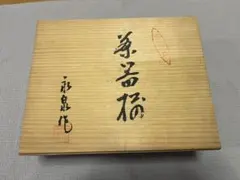 茶器揃
永泉作